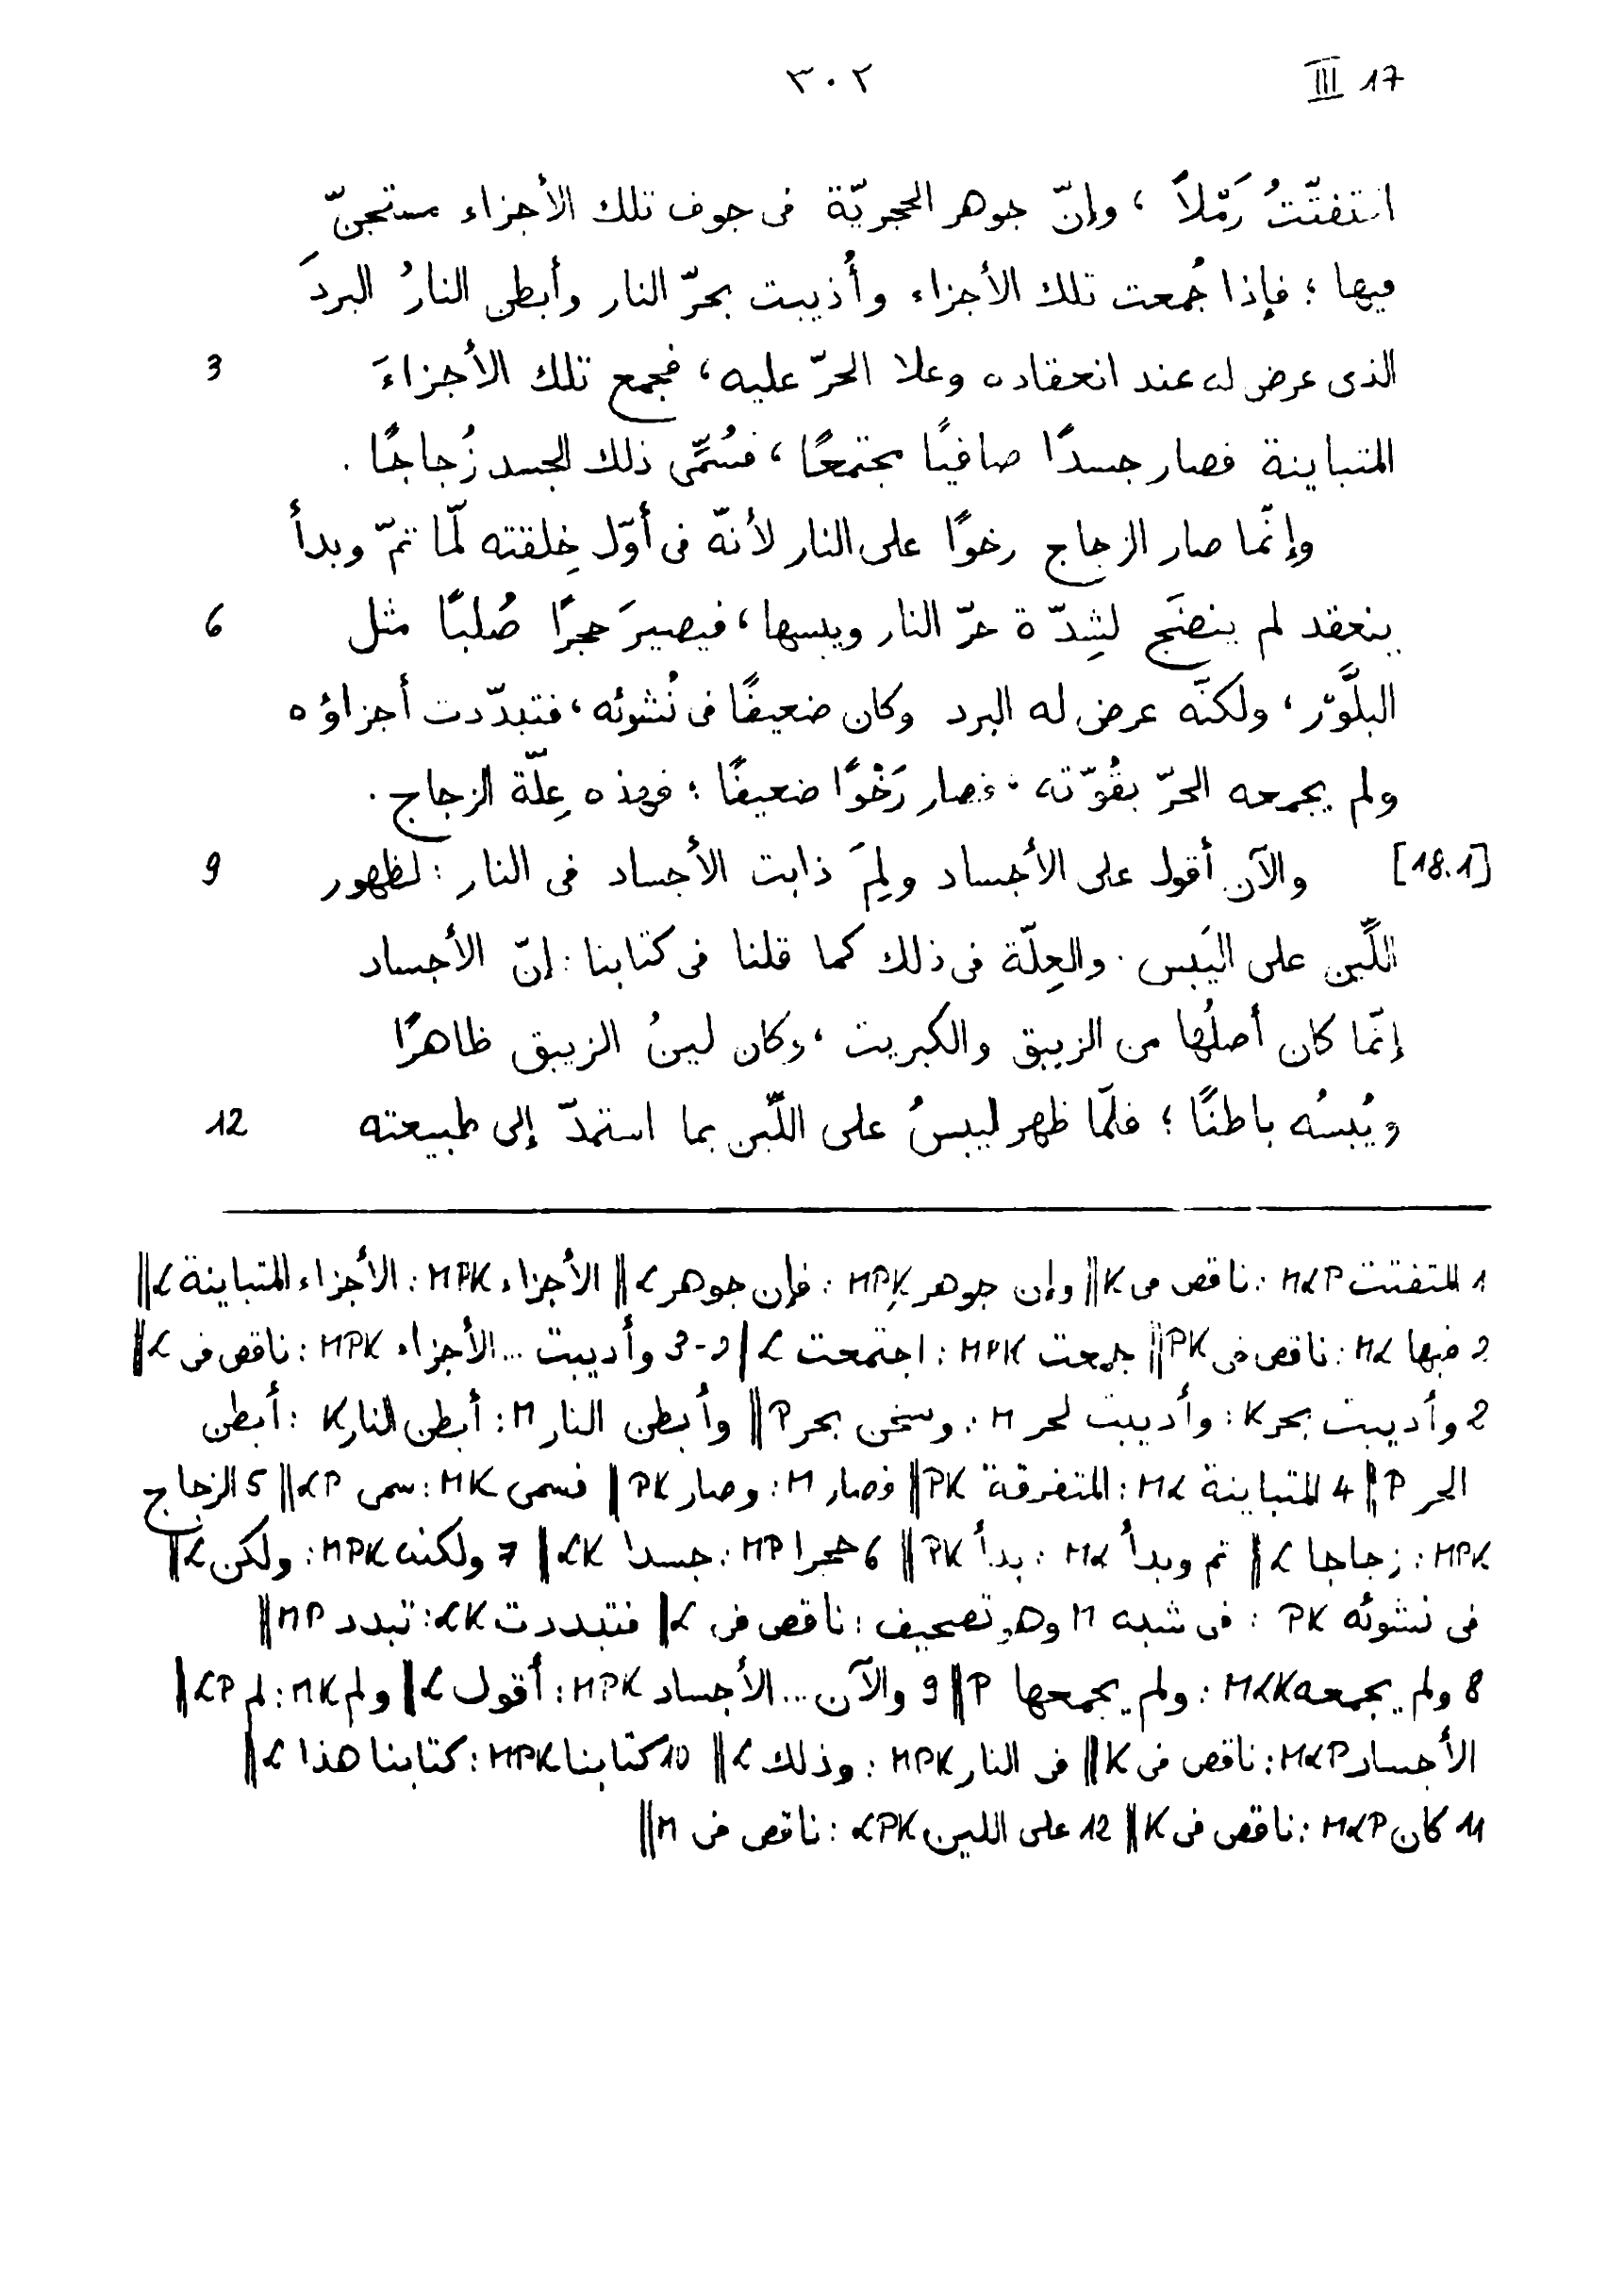 III 17 ٣٠٢
المتفتّتُ رَمْلاً ، وإنّ جوهر الحجريّة فى جوف تلك الأجزاء مستجنّ
فيها ؛ فإذا جُمعت تلك الأجزاء وأُذيبت بحرّ النار وأبطى النارُ البردَ
الذى عرض له عند انعقاده وعلا الحرّ عليه ، فجمع تلك الأجزاءَ 3
المتباينة فصار جسدًا صافيًا مجتمعًا ، فسُمِّى ذلك الجسد زُجاجًا .
وإنّما صار الزجاج رخوًا على النار لأنّه فى أوّل خِلقته لمّا تمّ وبدأ
ينعقد لم ينضَج لشِدّة حرّ النار ويبسها ، فيصيرَ حجرًا صُلبًا مثل 6
البلَّوْر ، ولكنّه عرض له البرد وكان ضعيفًا فى نُشوئه ، فتبدّدت أجزاؤه
ولم يجمعه الحرّ بقُوّته ، فصار رَخْوًا ضعيفًا ؛ فهذه عِلّة الزجاج .
[18.1] والآن أقول على الأجساد ولِمَ ذابت الأجساد فى النار : لظهور 9
اللِّين على اليَبس . والعِلّة فى ذلك كما قلنا فى كتابنا : إنّ الأجساد
إنّما كان أصلُها من الزيبق والكبريت ، وكان لينُ الزيبق ظاهرًا
ويُبسُه باطنًا ؛ فلمّا ظهر اليبسُ على اللّين بما استمدّ إلى طبيعته 12
1 المتفتت MLP : ناقص فى K || وإن جوهر MPK : فإن جوهر L || الأجزاء MPK : الأجزاء المتباينة L ||
2 فيها ML : ناقص فى PK || جمعت MPK : اجتمعت L || 2-3 وأديبت ... الأجزاء MPK : ناقص فى L ||
2 وأديبت بحر K : وأديبت لحر M : وسخن بحر P || وأبطى النار M : أبطى النار K : أبطى
الحر P || 4 المتباينة ML : المتفرقة PK || فصار M : وصار PK || فسمى MK : سمى LP || 5 الزجاج
MPK : زجاجا L || تم وبدأ ML : بدأ PK || 6 حجرا MP : جسدا LK || 7 ولكنه MPK : ولكن L ||
فى نشوئه PK : فى شبه M وهو تصحيف : ناقص فى L || فتبددت LK : تبدد MP ||
8 ولم يجمعه MLK : ولم يجمعها P || 9 والآن ... الأجساد MPK : أقول L || ولم MK : لم LP ||
الأجساد MLP : ناقص فى K || فى النار MPK : وذلك L || 10 كتابنا MPK : كتابنا هذا L ||
11 كان MLP : ناقص فى K || 12 على اللين LPK : ناقص فى M ||